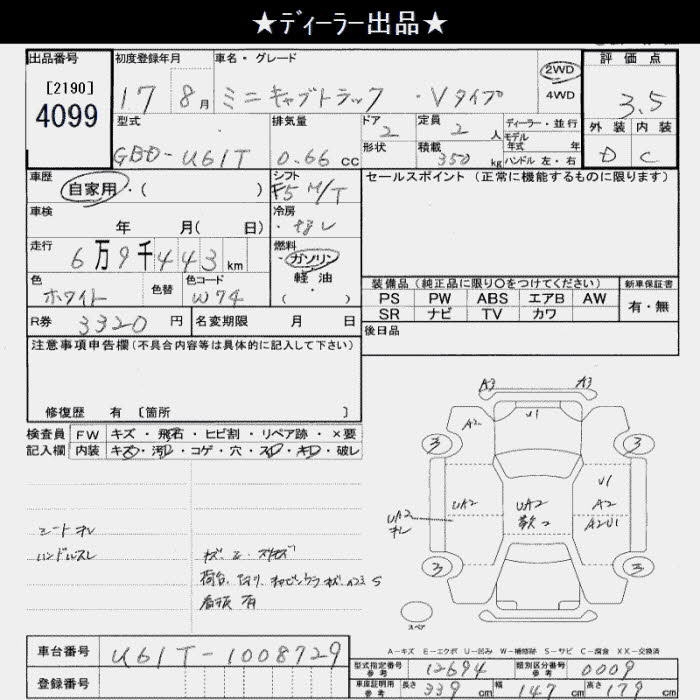 ★ディーラー出品★
出品番号 初度登録年月 車名・グレード 評価点
[2190]
4099
17 8月 ミニキャブトラック ・Vタイプ 2WD 3.5
4WD
型式 排気量 ドア 定員 ディーラー・並行 外装 内装
2 2人 モデル
GBD-U61T 0.66cc 形状 積載 年式 年 D C
350kg ハンドル 左・右
車歴 シフト セールスポイント(正常に機能するものに限ります)
自家用・( ) F5 M/T
車検 冷房
年 月( 日) ・ナシ
走行 燃料
6万9千443km ガソリン
軽油
( )
色 色替 色コード 装備品(純正品に限り○をつけてください) 新車保証書
ホワイト W74 PS PW ABS エアB AW 有・無
SR ナビ TV カワ
R券 3320円 名変期限 月 日 後日品
注意事項申告欄(不具合内容等は具体的に記入して下さい)
修復歴 有 [箇所 ]
検査員 FW キズ・飛石・ヒビ割・リペア跡・×要
記入欄 内装 キズ・汚レ・コゲ・穴・スレ・キレ・破レ
A3 A3
A2 U1
3 3
U1
UA2 UA2 A2
UA2 A2U1
キレ
3 3
シートキレ
ハンドルスレ
看板有
スペア
A-キズ E-エクボ U-凹み W-補修跡 S-サビ C-腐食 XX-交換済
車台番号 U61T-1008729
型式指定番号 12694 類別区分番号 0009
参考 参考
登録番号 車庫証明用 長さ 339cm 幅 147cm 高さ 179cm
参考